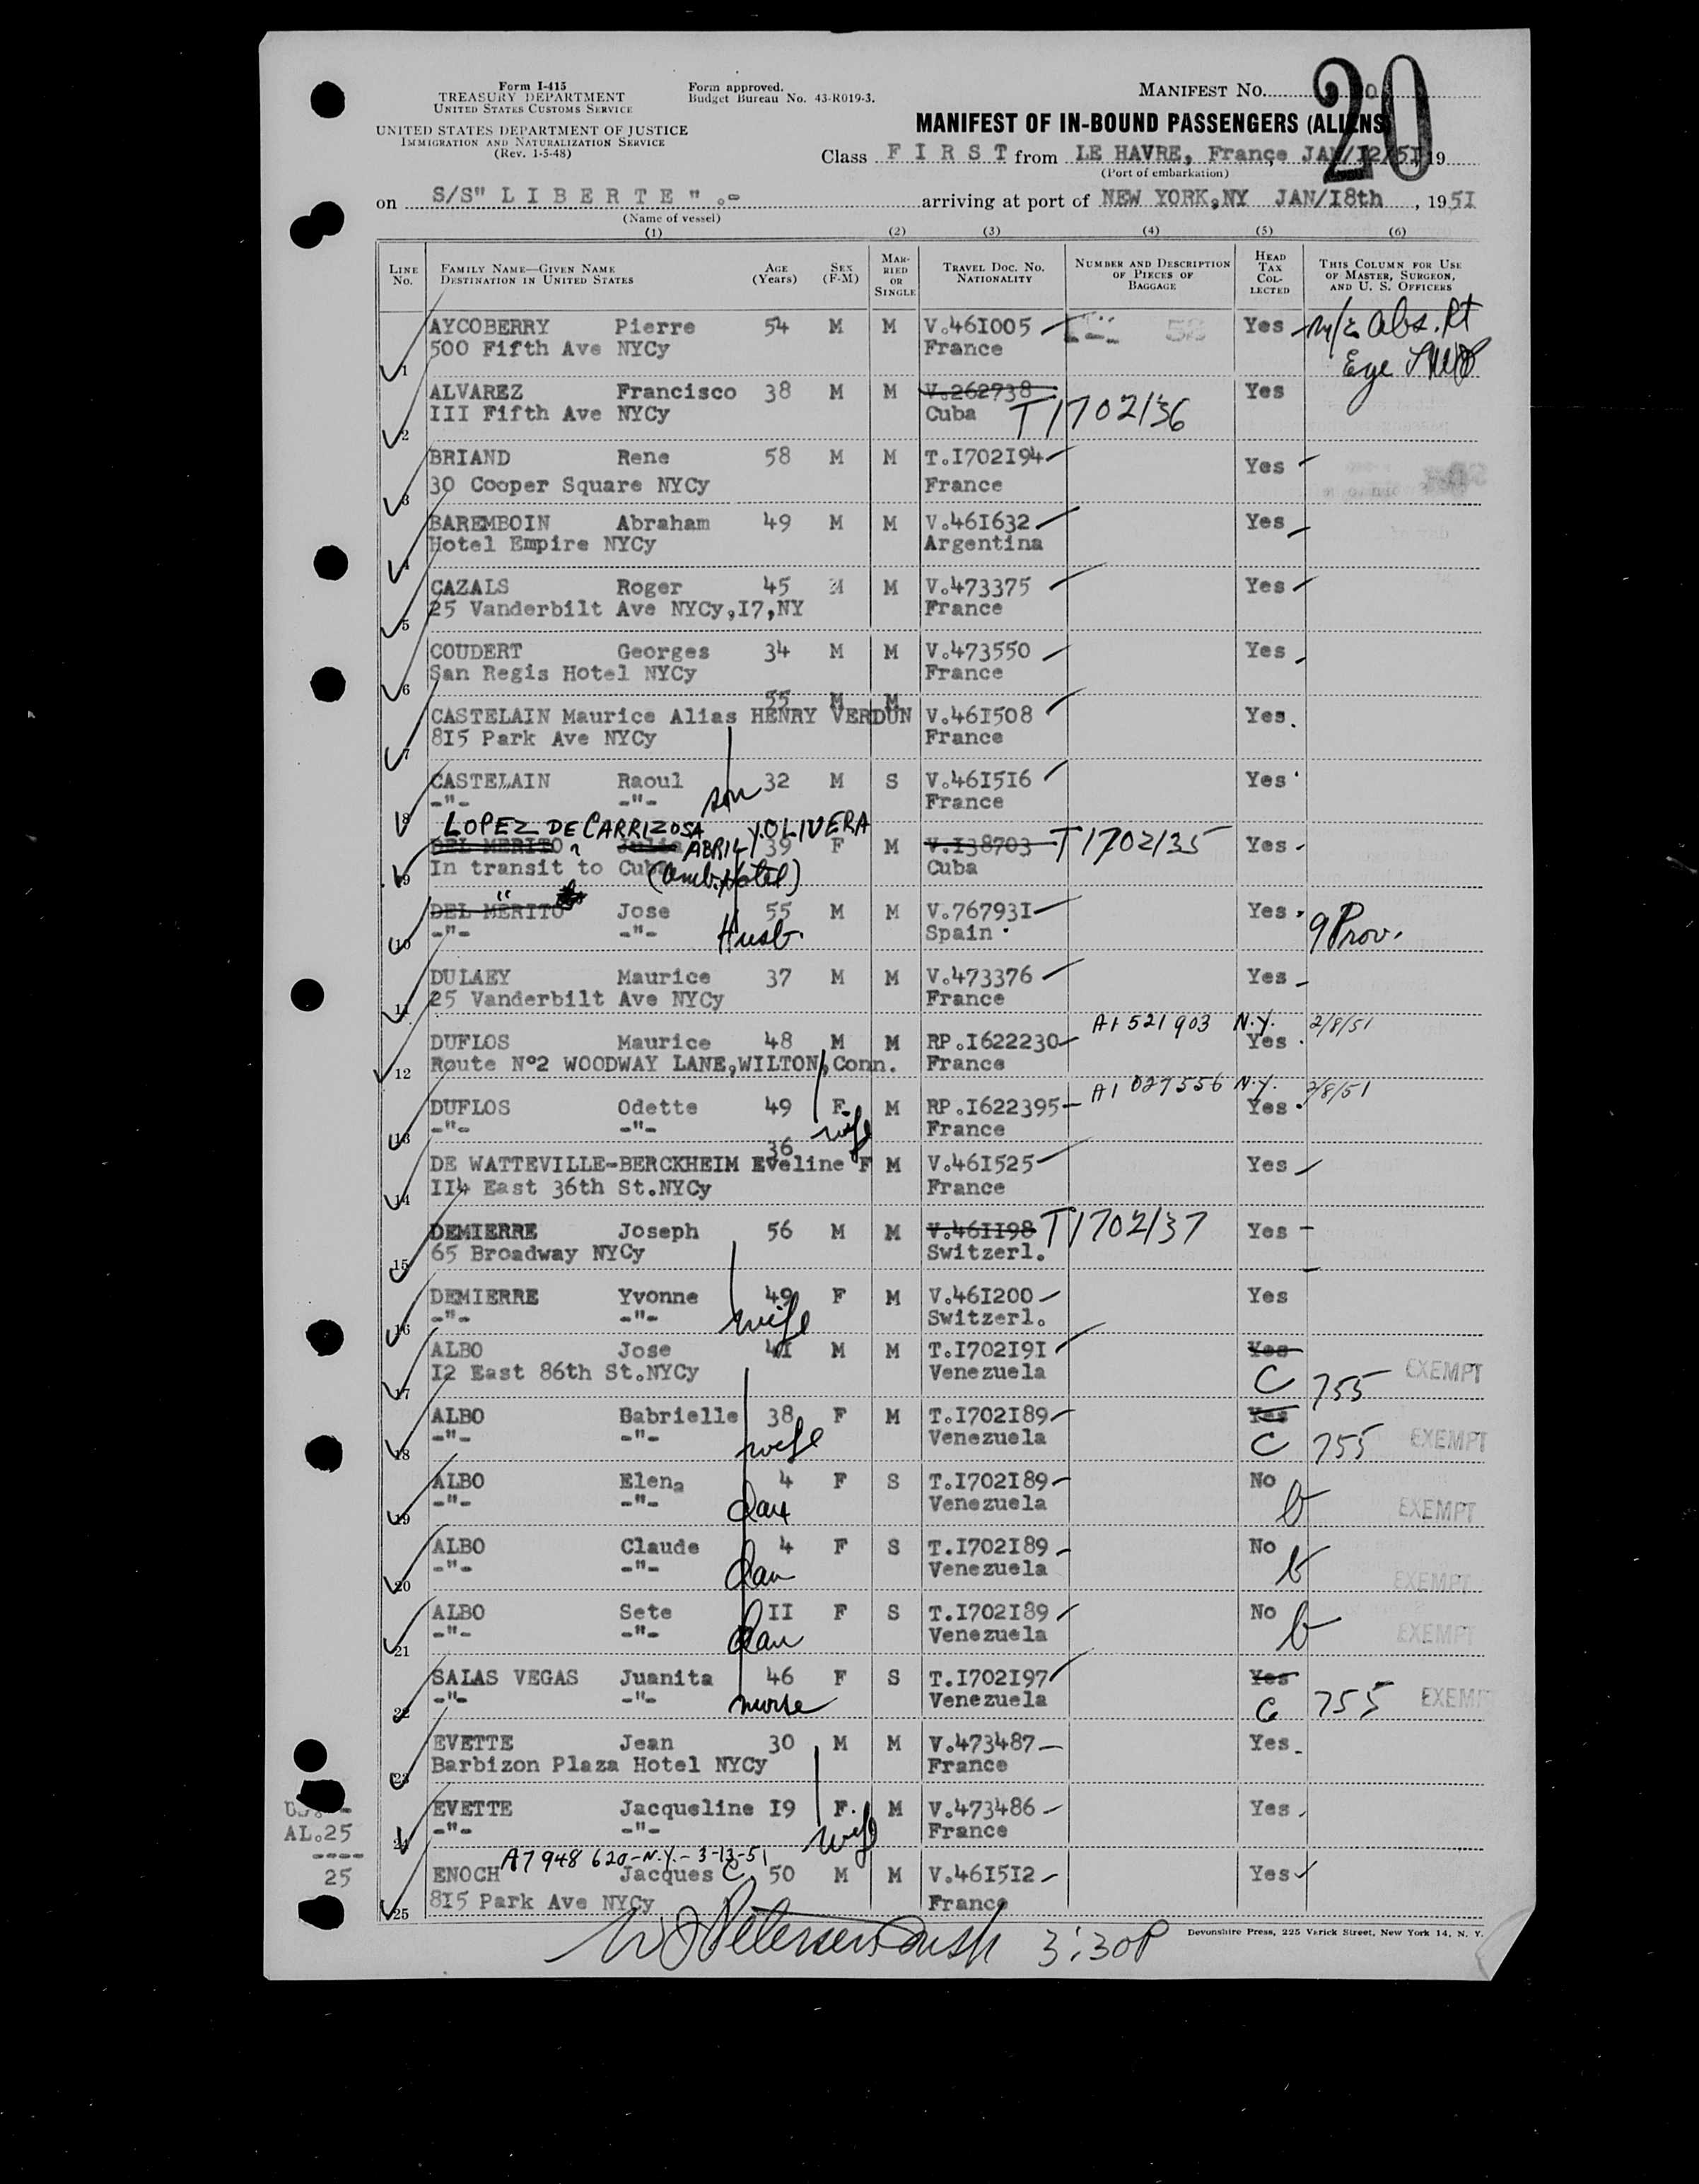 Form I-415
TREASURY DEPARTMENT
UNITED STATES CUSTOMS SERVICE
UNITED STATES DEPARTMENT OF JUSTICE
IMMIGRATION AND NATURALIZATION SERVICE
(Rev. 1-5-48)
Form approved.
Budget Bureau No. 43-R019-3.
MANIFEST NO. 20
MANIFEST OF IN-BOUND PASSENGERS (ALIENS)
Class F I R S T from LE HAVRE, France, JAN/I2/5I 19
(Port of embarkation)
on S/S" L I B E R T E " .- arriving at port of NEW YORK,NY JAN/I8th, 195I
(Name of vessel)
(1) (2) (3) (4) (5) (6)
LINE NO. FAMILY NAME—GIVEN NAME DESTINATION IN UNITED STATES AGE (YEARS) SEX (F-M) MARRIED OR SINGLE TRAVEL DOC. NO. NATIONALITY NUMBER AND DESCRIPTION OF PIECES OF BAGGAGE HEAD TAX COLLECTED THIS COLUMN FOR USE OF MASTER, SURGEON, AND U. S. OFFICERS
AYCOBERRY Pierre 54 M M V.46I005 Yes m/c Abs. Rt
1 500 Fifth Ave NYCy France Eye
ALVAREZ Francisco 38 M M V.262738 Yes
2 III Fifth Ave NYCy Cuba T1702136
BRIAND Rene 58 M M T.I702I94 Yes
3 30 Cooper Square NYCy France
BAREMBOIN Abraham 49 M M V.46I632 Yes
4 Hotel Empire NYCy Argentina
CAZALS Roger 45 M M V.473375 Yes
5 25 Vanderbilt Ave NYCy,I7,NY France
COUDERT Georges 34 M M V.473550 Yes
6 San Regis Hotel NYCy France
55 M M
CASTELAIN Maurice Alias HENRY VERDUN V.46I508 Yes.
7 8I5 Park Ave NYCy France
CASTELAIN Raoul son 32 M S V.46I5I6 Yes
8 -"- -"- France
LOPEZ DE CARRIZOSA Y.OLIVERA
DEL MERITO Julia ABRIL 39 F M V.I38703 T1702135 Yes
9 In transit to Cuba (Amb. Hotel) Cuba
DEL MERITO " Jose 55 M M V.76793I Yes 9 Prov.
10 -"- -"- Husb. Spain
DULAEY Maurice 37 M M V.473376 Yes
11 25 Vanderbilt Ave NYCy France
A1 521 903 N.Y. 2/8/51
DUFLOS Maurice 48 M M RP.I622230 Yes
12 Route N°2 WOODWAY LANE,WILTON,Conn. France
A1 027556 N.Y. 2/8/51
DUFLOS Odette 49 F. M RP.I622395 Yes
13 -"- -"- wife France
36
DE WATTEVILLE-BERCKHEIM Eveline F M V.46I525 Yes
14 II4 East 36th St.NYCy France
DEMIERRE Joseph 56 M M V.46II98 T1702137 Yes
15 65 Broadway NYCy Switzerl.
DEMIERRE Yvonne 49 F M V.46I200 Yes
16 -"- -"- wife Switzerl.
ALBO Jose 4I M M T.I702I9I Yes
17 I2 East 86th St.NYCy Venezuela C 755 EXEMPT
ALBO Gabrielle 38 F M T.I702I89 Yes
18 -"- -"- wife Venezuela C 755 EXEMPT
ALBO Elena 4 F S T.I702I89 No
19 -"- -"- dau Venezuela b EXEMPT
ALBO Claude 4 F S T.I702I89 No
20 -"- -"- dau Venezuela b EXEMPT
ALBO Sete II F S T.I702I89 No
21 -"- -"- dau Venezuela b EXEMPT
SALAS VEGAS Juanita 46 F S T.I702I97 Yes
22 -"- -"- nurse Venezuela C 755 EXEMPT
EVETTE Jean 30 M M V.473487 Yes
23 Barbizon Plaza Hotel NYCy France
EVETTE Jacqueline I9 F. M V.473486 Yes
24 -"- -"- wife France
A7 948 620-N.Y.- 3-13-51
ENOCH Jacques C. 50 M M V.46I5I2 Yes
25 8I5 Park Ave NYCy France
AL.25
----
25
W J Petersen 3:30P
Devonshire Press, 225 Varick Street, New York 14, N. Y.